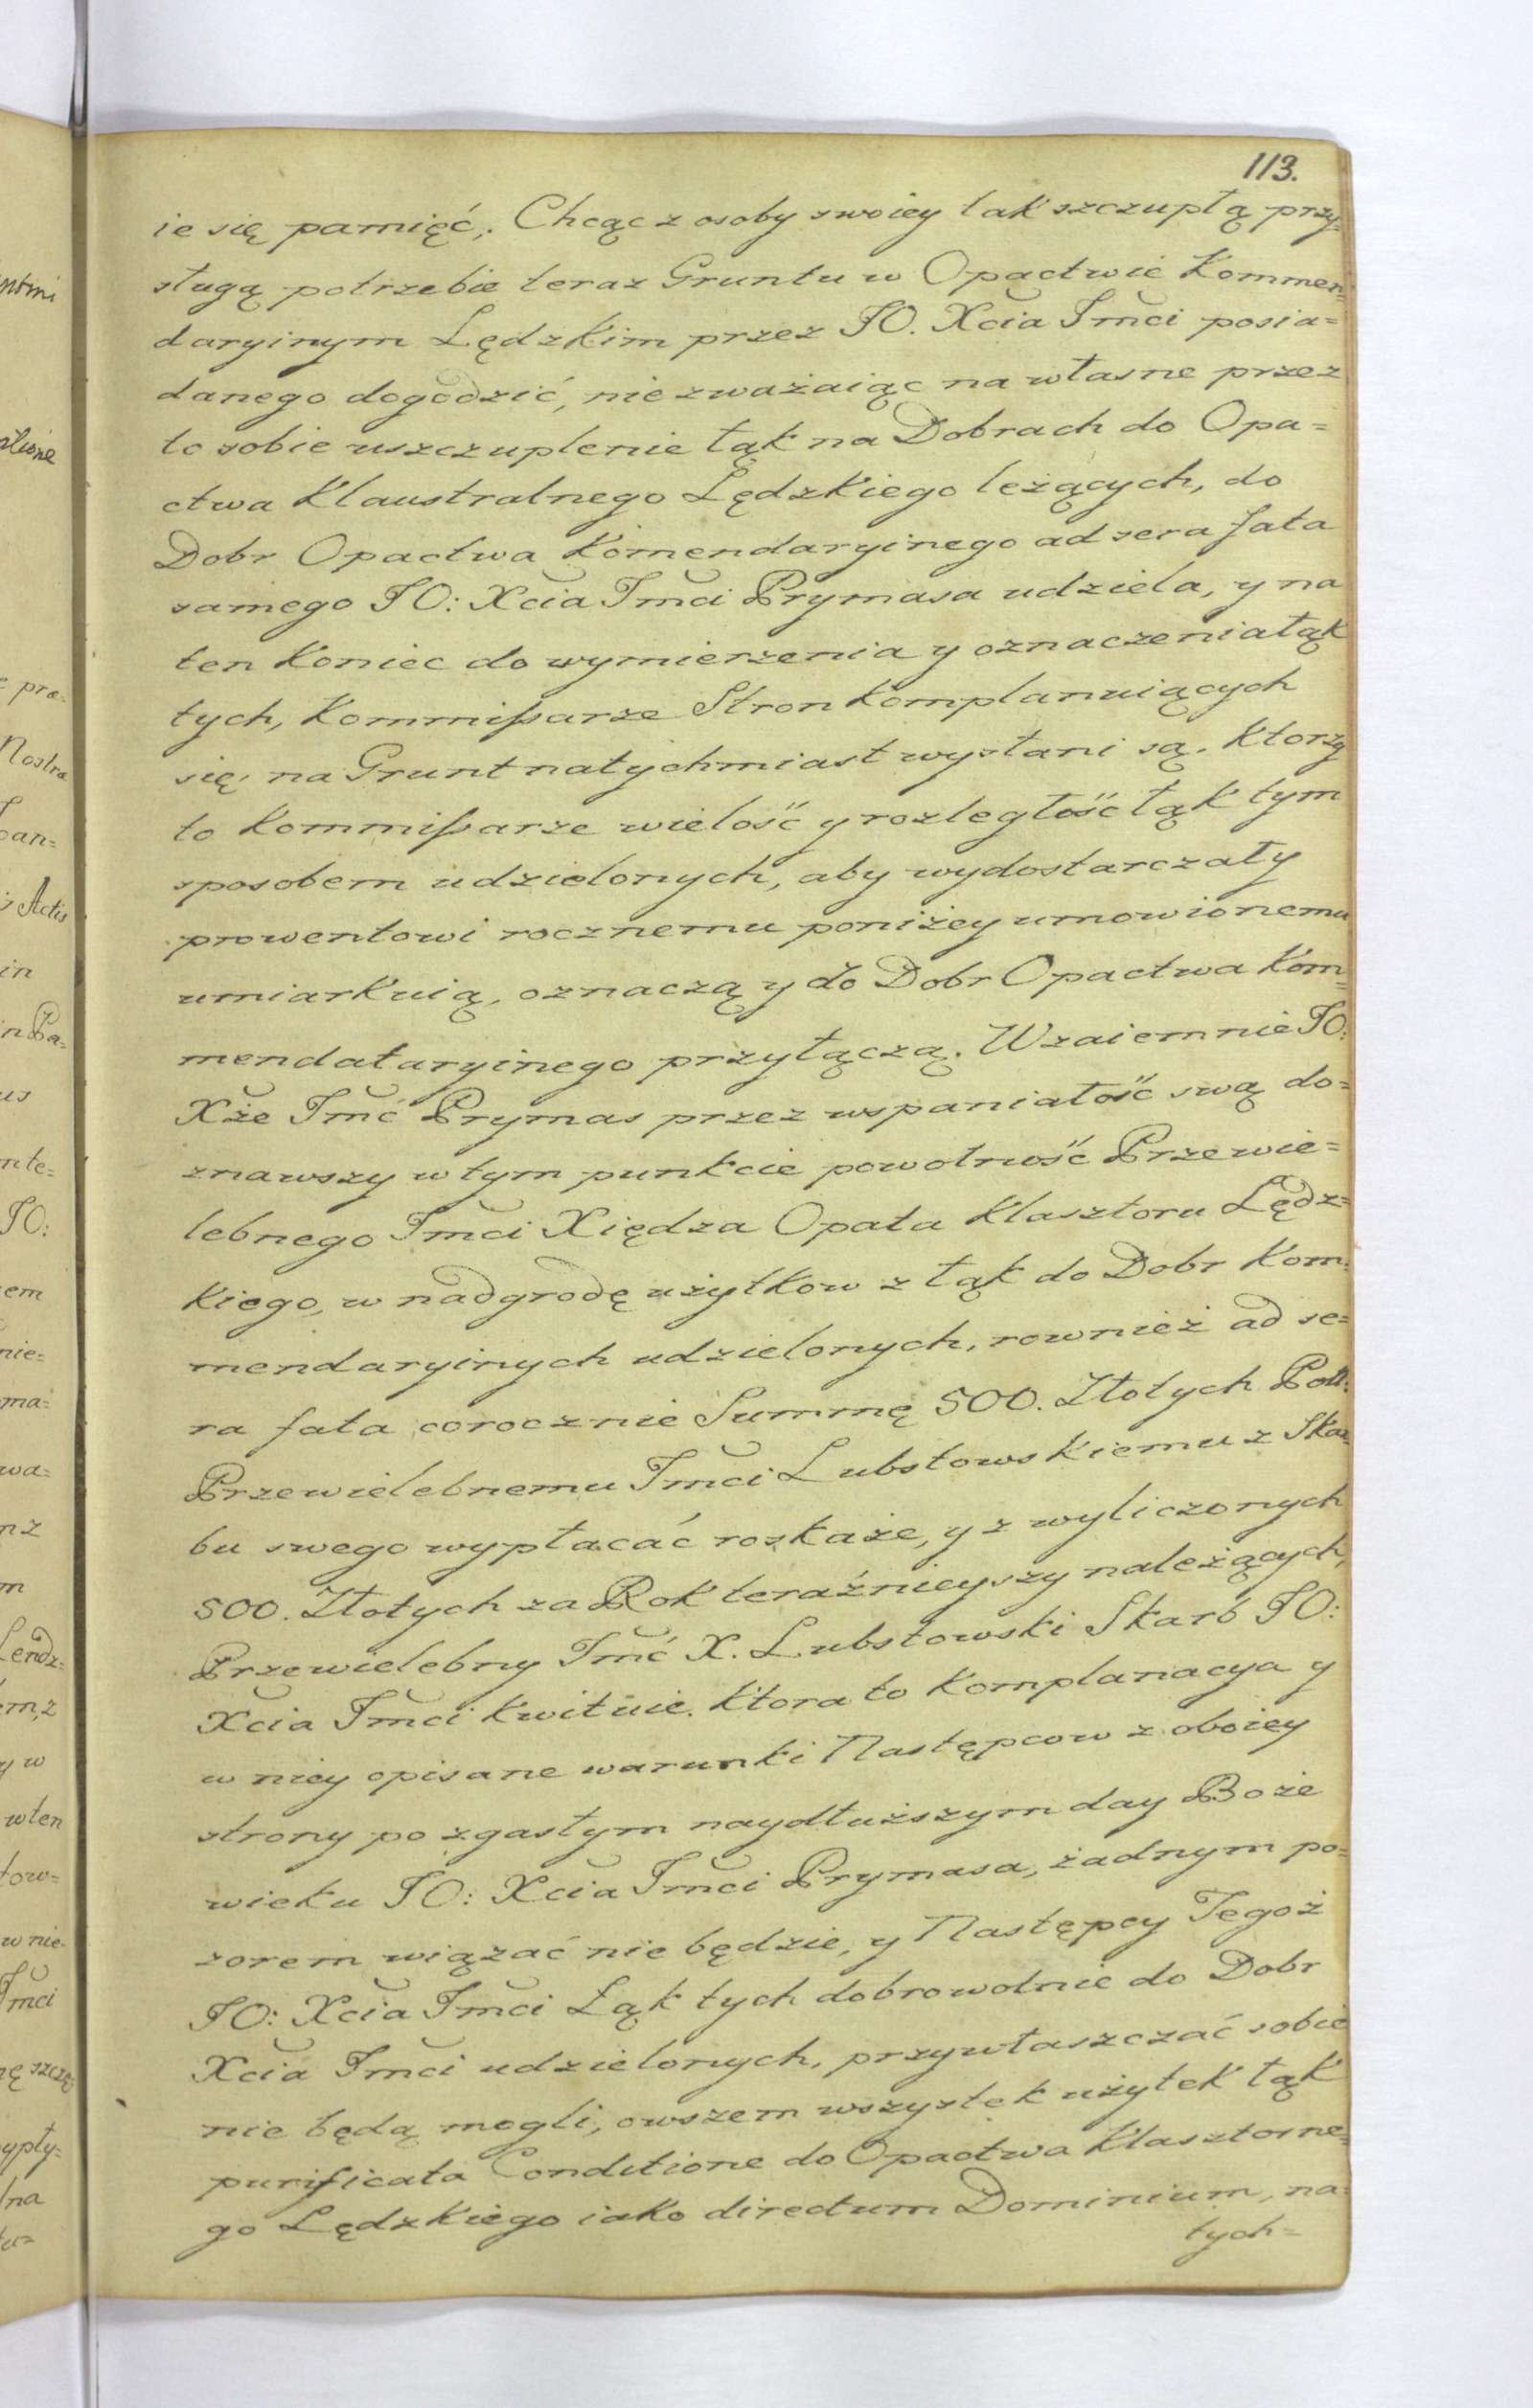 113.
ie się pamięć,. Chcąc z osoby swoiey tak szczupłą przy=
sługą potrzebie teraz Gruntu w Opactwie Kommen=
daryinym Lędzkim przez JO. Xcia Jmci posia=
danego dogodzić, nie zważaiąc na własne przez
to sobie uszczuplenie łąk na Dobrach do Opa=
ctwa Klaustralnego Lędzkiego leżących, do
Dobr Opactwa Komendaryinego ad sera fata
samego JO: Xcia Jmci Prymasa udziela, y na
ten Koniec do wymierzenia y oznaczenia łąk
tych, Kommissarze Stron Komplanuiących
się na Grunt natychmiast wysłani są. Ktorzy
to Kommissarze wielość y rozległość łąk tym
sposobem udzielonych, aby wydostarczały
prowentowi rocznemu poniżey umowionemu
umiarkuią, oznaczą y do Dobr Opactwa Kom=
mendataryinego przyłączą. Wzaiemnie JO:
Xże Jmć Prymas przez wspaniałość swą do=
znawszy w tym punkcie powolność Przewie=
lebnego Jmci Xiędza Opata Klasztoru Lędz=
kiego, w nadgrodę użytkow z łąk do Dobr Kom=
mendaryinych udzielonych, rownież ad se=
ra fata corocznie Summę 500. Złotych Poll:
Przewielebnemu Jmci Lubstowskiemu z Skar=
bu swego wypłacać roskaże, y z wyliczonych
500. Złotych za Rok teraźnieyszy należących,
Przewielebny Jmć X. Lubstowski Skarb JO:
Xcia Jmci Kwituie. Ktora to Komplanacya y
w niey opisane warunki Następcow z oboiey
strony po zgasłym naydłuższym day Boże
wieku JO: Xcia Jmci Prymasa, żadnym po=
zorem wiązać nie będzie, y Następcy Tegoż
JO: Xcia Jmci Łąk tych dobrowolnie do Dobr
Xcia Jmci udzielonych, przywłaszczać sobie
nie będą mogli, owszem wszystek użytek łąk
purificata Conditione do Opactwa Klasztorne=
go Lędzkiego iako directum Dominium, na=
tych=